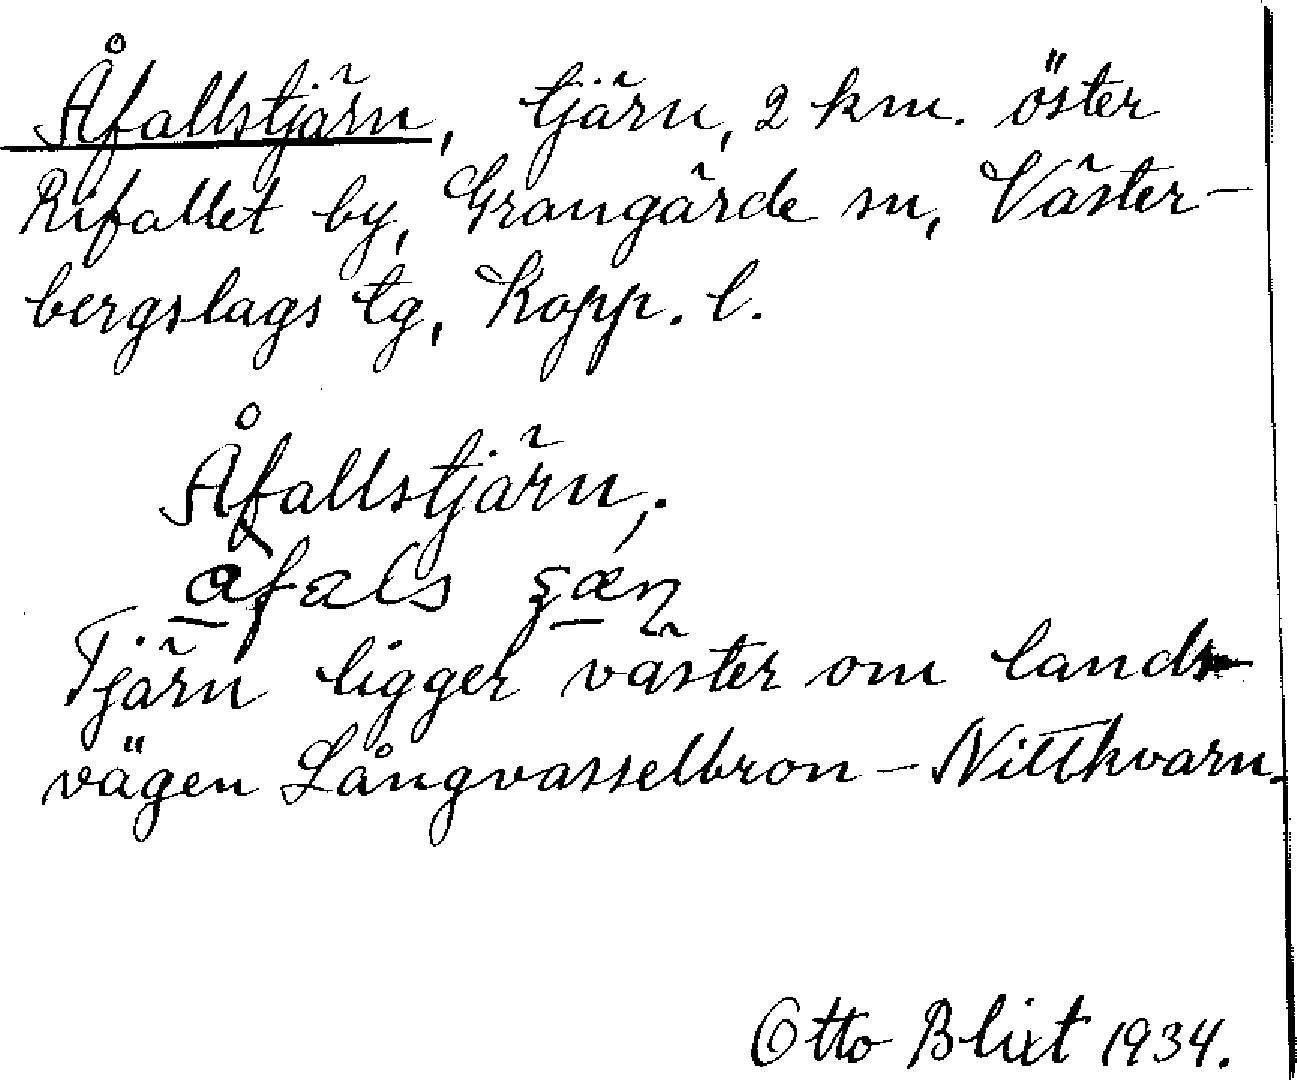 Åfallstjärn, tjärn, 2 km. öster
Rifallet by, Grangärde sn, Väster-
bergslags tg, Kopp. l.
Åfallstjärn,.
Tjärn ligger väster om lands-
vägen Långvasselbron - Nittkvarn.
Otto Blixt 1934.